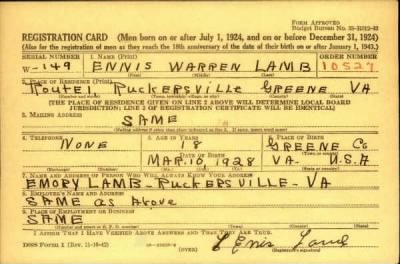 FORM APPROVED
REGISTRATION CARD (Men born on or after July 1, 1924, and on or before December 31, 1924)
(Also for the registration of men as they reach the 18th anniversary of the date of their birth on or after January 1, 1943.)
SERIAL NUMBER 1. NAME (Print) ORDER NUMBER
W-149 ENNIS WARREN LAMB 10527
(First) (Middle) (Last)
2. PLACE OF RESIDENCE (Print)
ROUTE 1 RUCKERSVILLE GREENE VA
(Number and street) (Town, township, village, or city) (County) (State)
[THE PLACE OF RESIDENCE GIVEN ON LINE 2 ABOVE WILL DETERMINE LOCAL BOARD
JURISDICTION; LINE 2 OF REGISTRATION CERTIFICATE WILL BE IDENTICAL]
3. MAILING ADDRESS
SAME
4. TELEPHONE 5. AGE IN YEARS 6. PLACE OF BIRTH
NONE 18 GREENE CO
DATE OF BIRTH
MAR. 10, 1928 VA- U.S.A
7. NAME AND ADDRESS OF PERSON WHO WILL ALWAYS KNOW YOUR ADDRESS
EMORY LAMB- RUCKERSVILLE- VA
8. EMPLOYER'S NAME AND ADDRESS
SAME AS ABOVE
9. PLACE OF EMPLOYMENT OR BUSINESS
SAME
I AFFIRM THAT I HAVE VERIFIED ABOVE ANSWERS AND THAT THEY ARE TRUE.
DSS Form 1 (Rev. 11-16-42) (OVER)
(Registrant's signature)